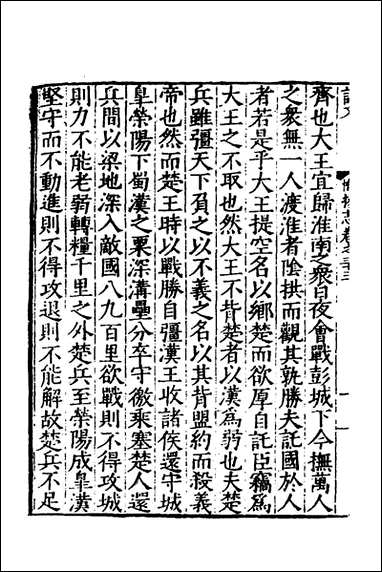 齊也大王宜歸淮南之衆日夜會戰彭城下今撫萬人
之衆無一人渡淮者隂拱而觀其孰勝夫託國於人
者若是乎大王提空名以鄉楚而欲厚自託臣竊爲
大王之不取也然大王不背楚者以漢爲弱也夫楚
兵雖彊天下負之以不義之名以其背盟約而殺義
帝也然而楚王時以戰勝自彊漢王收諸侯還守城
臯滎陽下蜀漢之粟深溝壘分卒守徼乘塞楚人還
兵間以梁地深入敵國八九百里欲戰則不得攻城
則力不能老弱轉糧千里之外楚兵至滎陽成臯漢
堅守而不動進則不得攻退則不能解故楚兵不足